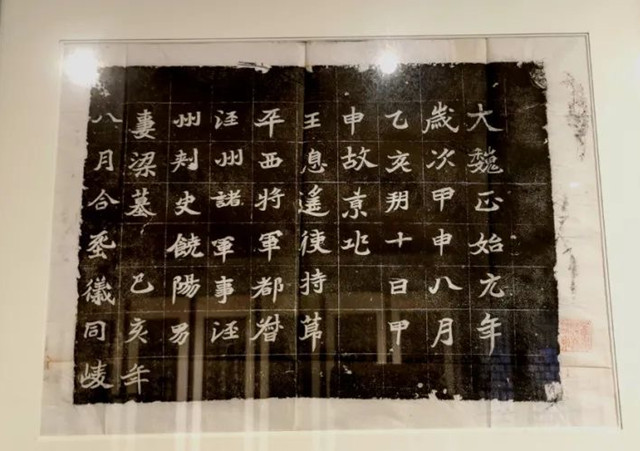 大魏正始元年
歲次甲申八月
乙亥朔十日甲
申故京兆
王息遙使持節
平西將軍都督
涇州諸軍事涇
州刺史饒陽男
妻梁墓 己亥年
八月合葬儀同陵